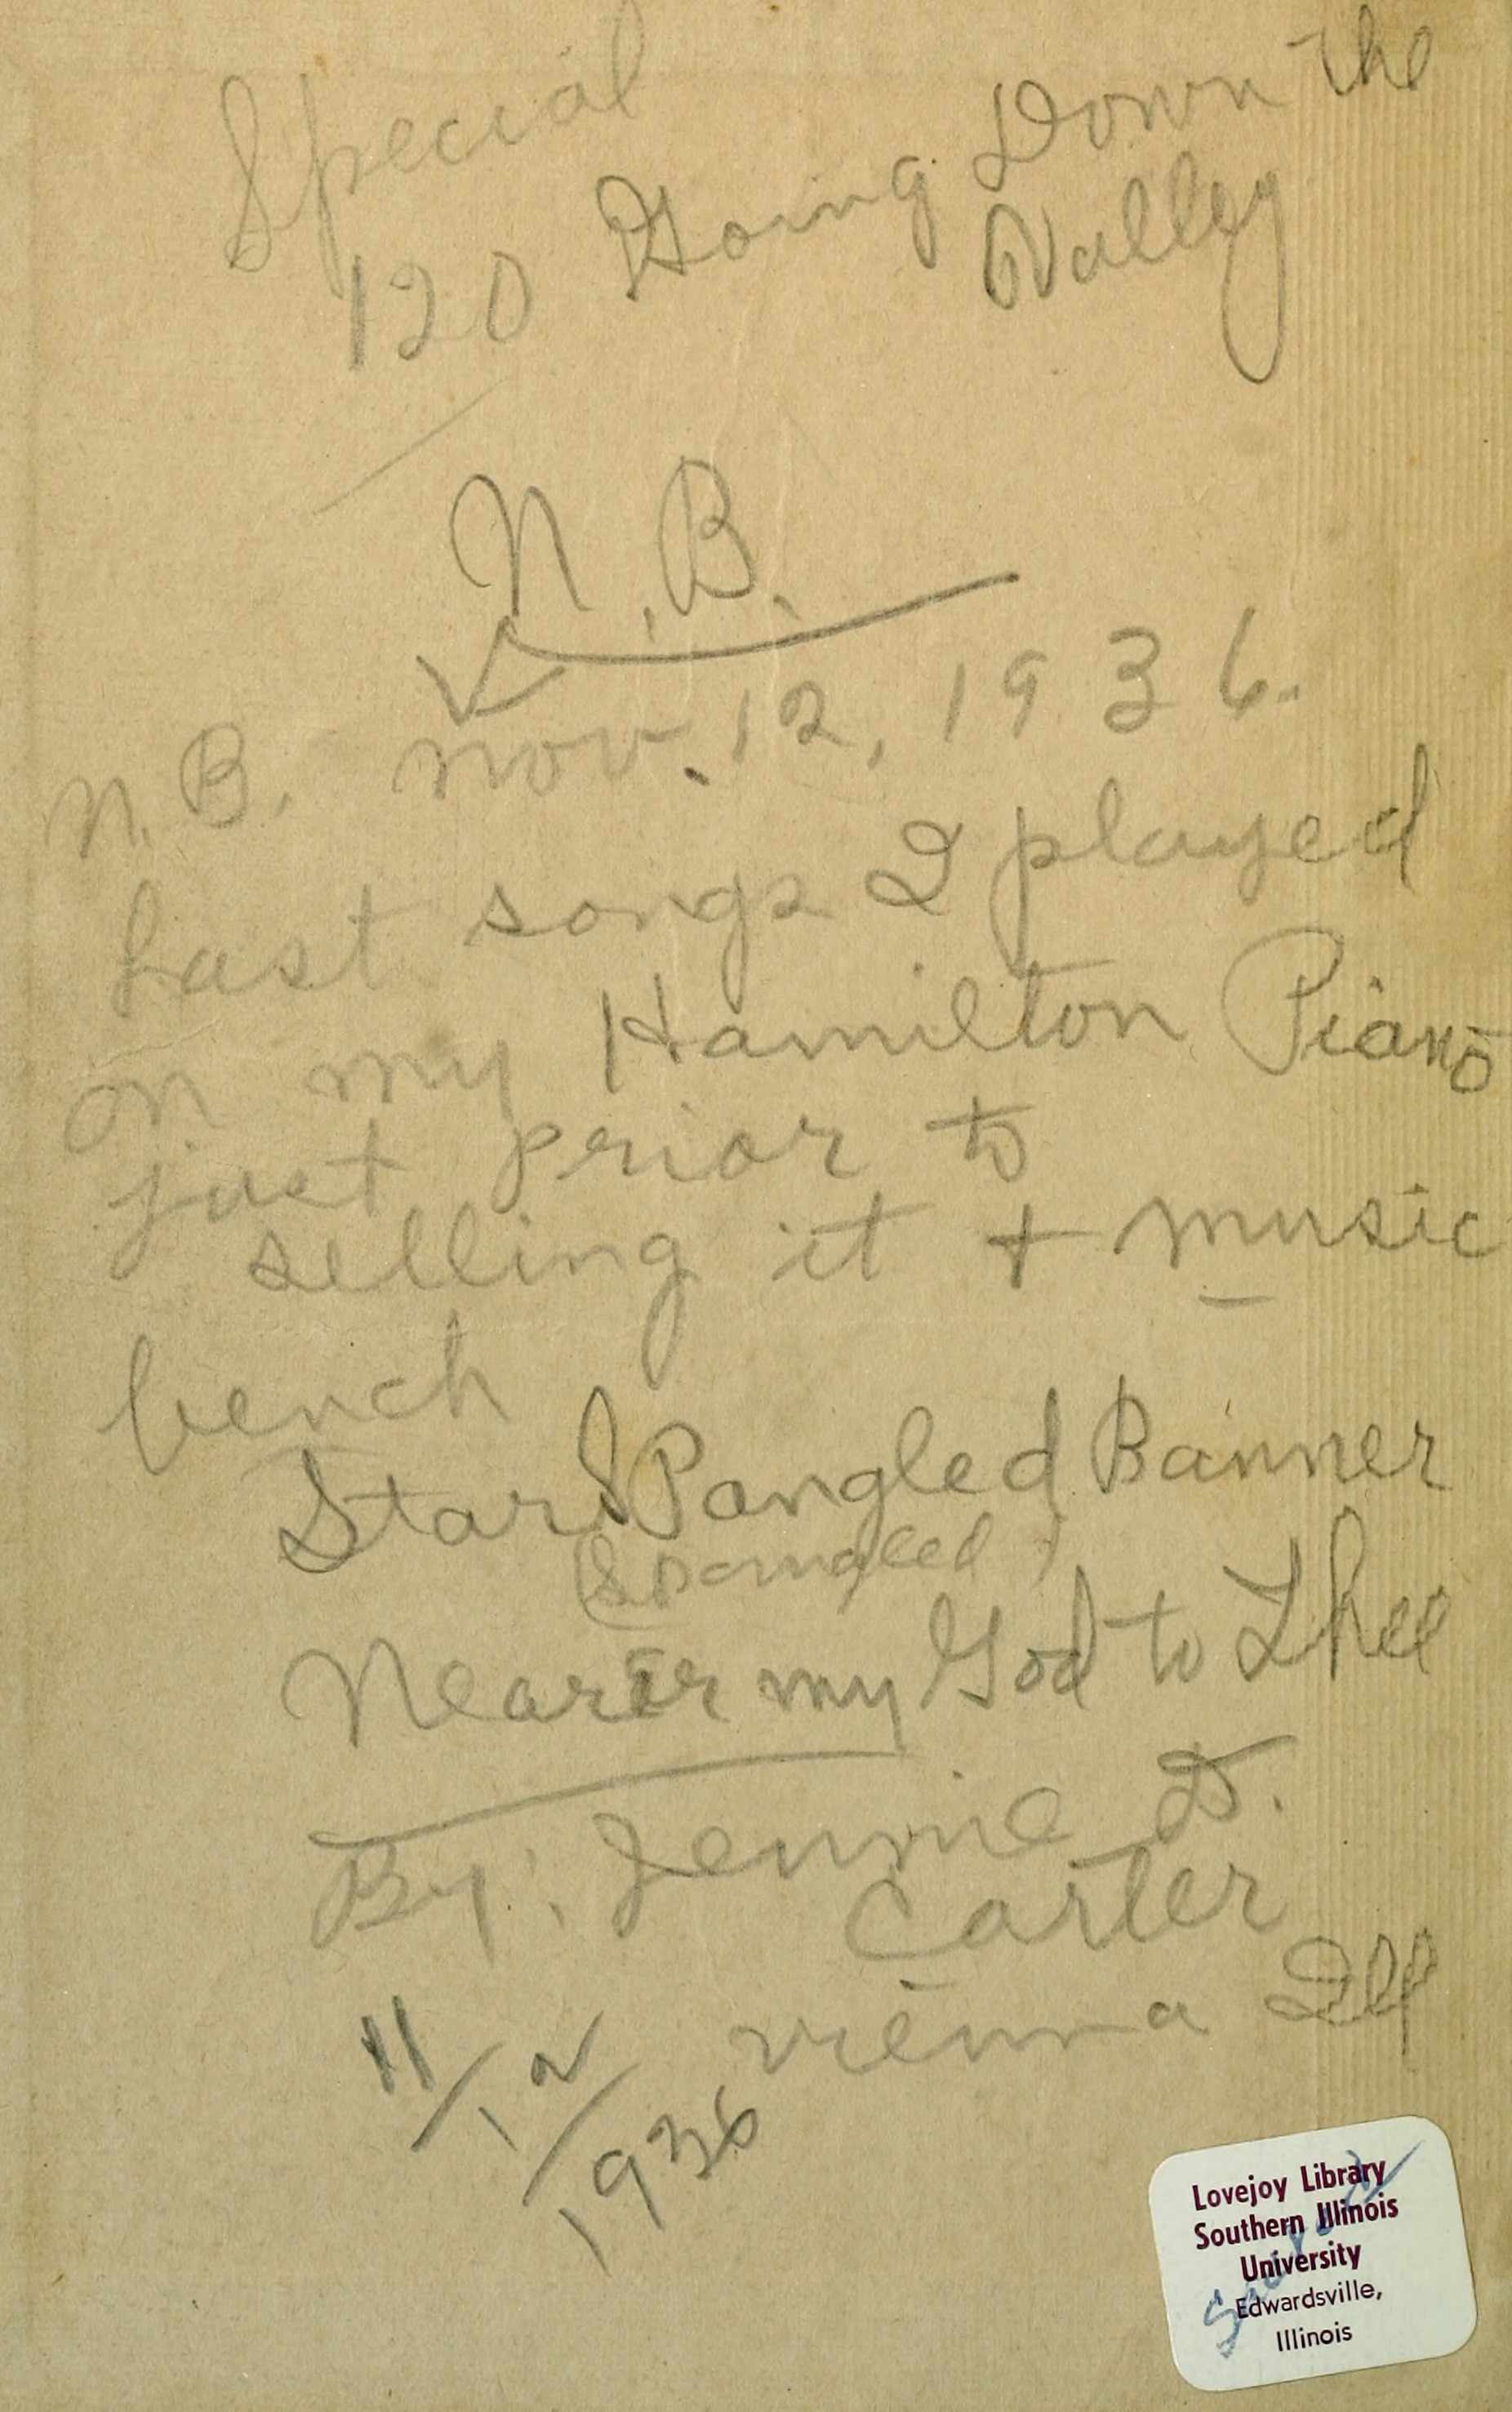 Special
120 Going Down the
Valley
N.B.
N.B. Nov. 12, 1936.
Last songs I played
on my Hamilton Piano
just prior to
selling it + music
bench
Star SPangled Banner
(Spangled)
Nearer my God to Thee
By: Jennie D.
Carter
Vienna Ill
11/12/1936
Lovejoy Library
Southern Illinois
University
Edwardsville,
Illinois